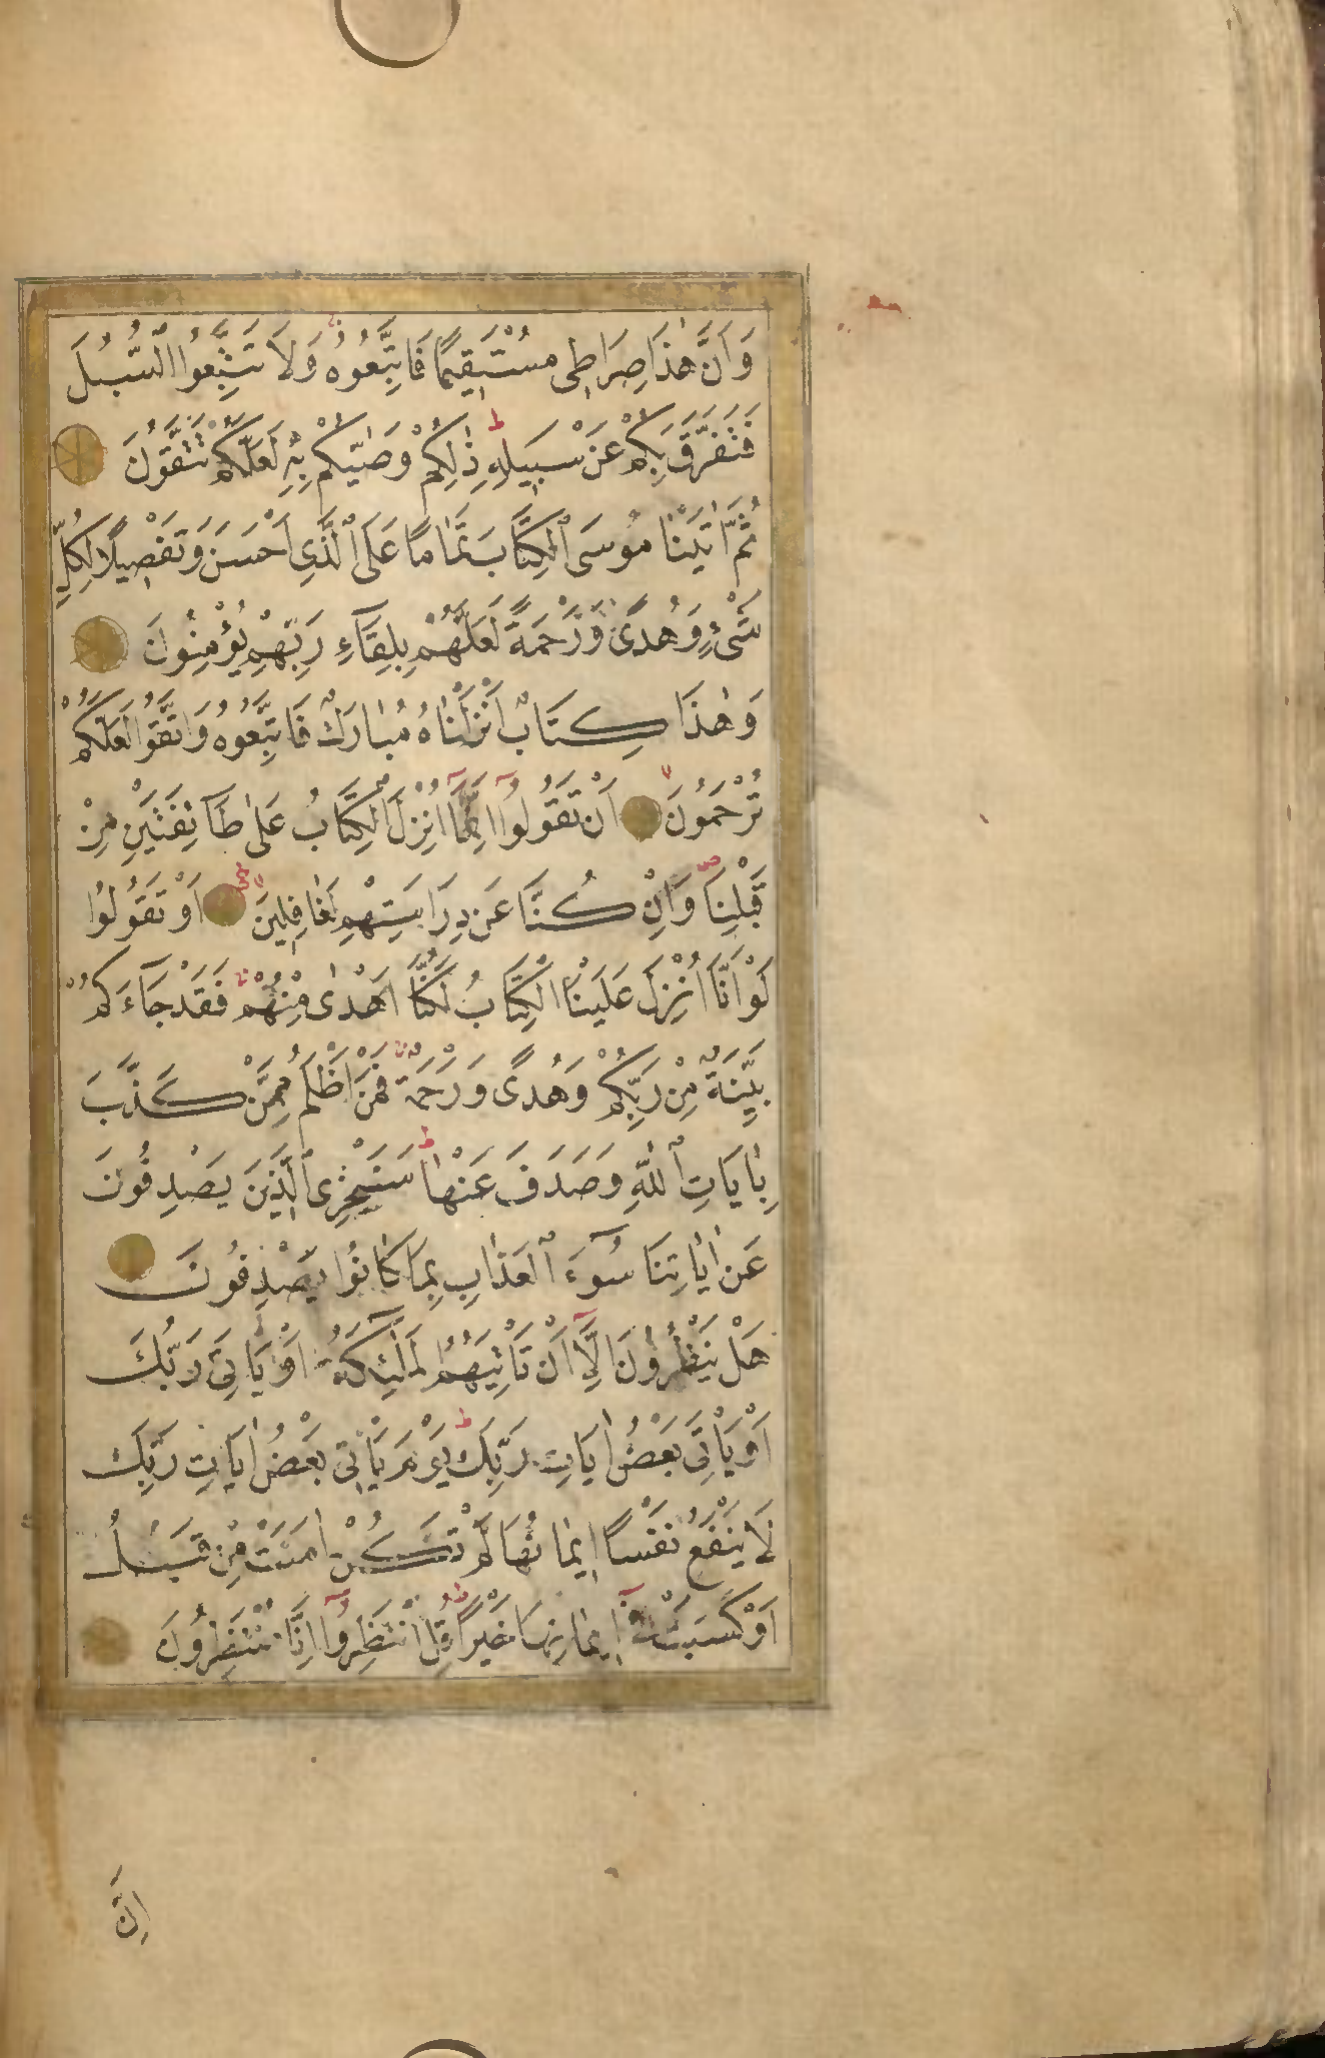 وَاَنَّ هٰذَا صِرَاطِى مُسْتَقِيمًا فَاتَّبِعُوهُ وَلَا تَتَّبِعُوا السُّبُلَ
فَتَفَرَّقَ بِكُمْ عَنْ سَبِيلِهِ ذٰلِكُمْ وَصّٰيكُمْ بِهِ لَعَلَّكُمْ تَتَّقُونَ
ثُمَّ اٰتَيْنَا مُوسَى الْكِتَابَ تَمَامًا عَلَى الَّذِى اَحْسَنَ وَتَفْصِيلًا لِكُلِّ
شَىْءٍ وَهُدًى وَرَحْمَةً لَعَلَّهُمْ بِلِقَآءِ رَبِّهِمْ يُؤْمِنُونَ
وَهٰذَا كِتَابٌ اَنْزَلْنَاهُ مُبَارَكٌ فَاتَّبِعُوهُ وَاتَّقُوا لَعَلَّكُمْ
تُرْحَمُونَ اَنْ تَقُولُوا اِنَّمَا اُنْزِلَ الْكِتَابُ عَلٰى طَآئِفَتَيْنِ مِنْ
قَبْلِنَا وَاِنْ كُنَّا عَنْ دِرَاسَتِهِمْ لَغَافِلِينَ اَوْ تَقُولُوا
لَوْ اَنَّا اُنْزِلَ عَلَيْنَا الْكِتَابُ لَكُنَّا اَهْدٰى مِنْهُمْ فَقَدْ جَآءَكُمْ
بَيِّنَةٌ مِنْ رَبِّكُمْ وَهُدًى وَرَحْمَةٌ فَمَنْ اَظْلَمُ مِمَّنْ كَذَّبَ
بِاٰيَاتِ اللّٰهِ وَصَدَفَ عَنْهَا سَنَجْزِى الَّذِينَ يَصْدِفُونَ
عَنْ اٰيَاتِنَا سُوٓءَ الْعَذَابِ بِمَا كَانُوا يَصْدِفُونَ
هَلْ يَنْظُرُونَ اِلَّا اَنْ تَاْتِيَهُمُ الْمَلٰٓئِكَةُ اَوْ يَاْتِىَ رَبُّكَ
اَوْ يَاْتِىَ بَعْضُ اٰيَاتِ رَبِّكَ يَوْمَ يَاْتِى بَعْضُ اٰيَاتِ رَبِّكَ
لَا يَنْفَعُ نَفْسًا اِيمَانُهَا لَمْ تَكُنْ اٰمَنَتْ مِنْ قَبْلُ
اَوْ كَسَبَتْ فِٓى اِيمَانِهَا خَيْرًا قُلِ انْتَظِرُوا اِنَّا مُنْتَظِرُونَ
اِنَّ